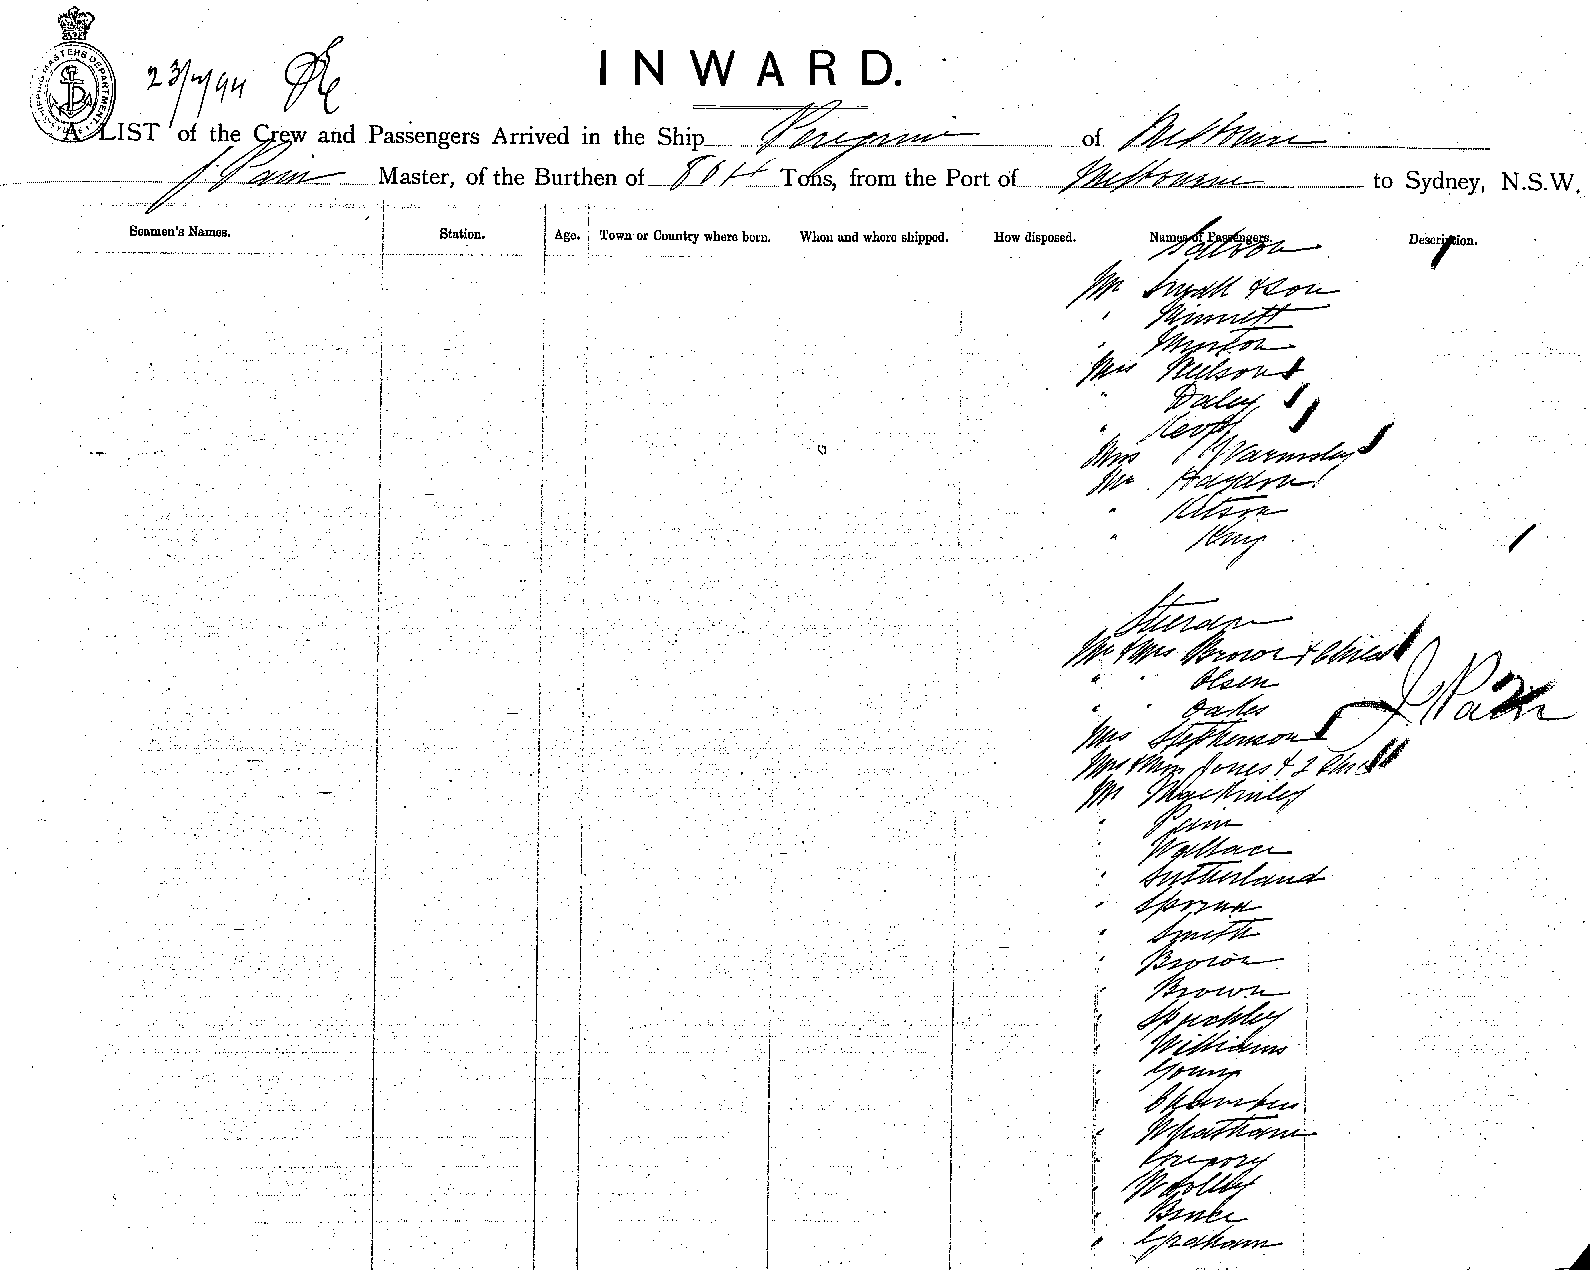 SHIPPING MASTERS DEPARTMENT
INWARD.
A LIST of the Crew and Passengers Arrived in the Ship Peregrine of Melbourne
J. Pain Master, of the Burthen of Tons, from the Port of Melbourne to Sydney, N.S.W.
Seamen's Names. Station. Age. Town or Country where born. When and where shipped. How disposed. Names of Passengers. Description.
Saloon
Mr Small & Son
" Minnett
" 
Miss Neilson
" Daley
"
Miss Warmsley
Mr Haydon
" Kitson
" King
Steerage
Mr & Mrs Brown & Child
" " Olsen
" " Oakes
J Pain
Mrs Stephenson
Mrs & Miss Jones & 2
Mr MacKinley
" 
" Wallace
" Sutherland
"
" Smith
" Brown
" Brown
" Spuckley
" Williams
" Young
" Chambers
"
" Gregory
" Woolley
" Bruce
" Graham